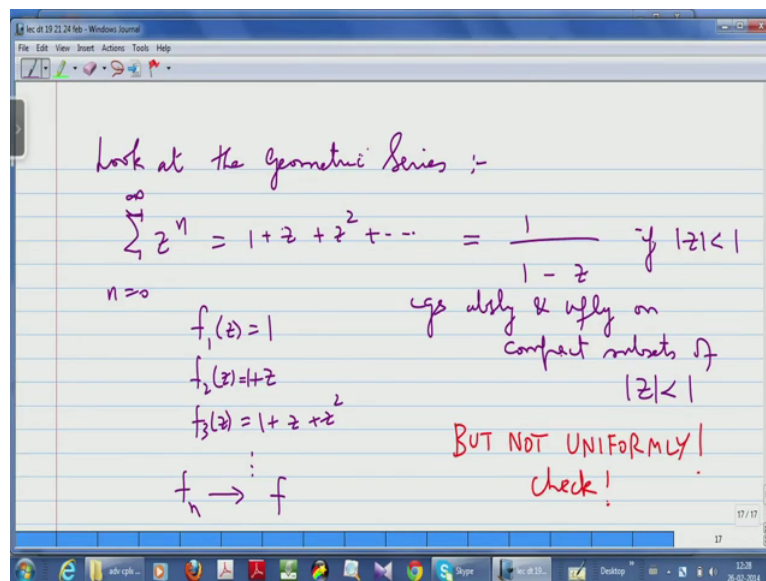 lec dt 19 21 24 feb - Windows Journal
File Edit View Insert Actions Tools Help
Look at the Geometric Series :-
∞
∑ z^n = 1 + z + z^2 + ... = 1/(1 - z) if |z| < 1
n=0
cgs absly & ufly on
compact subsets of
|z| < 1
f_1(z) = 1
f_2(z) = 1+z
f_3(z) = 1 + z + z^2
⋮
f_n → f
BUT NOT UNIFORMLY!
check!
17 / 17
17
adv cplx ...
Skype
lec dt 19...
Desktop
12:28
26-02-2014